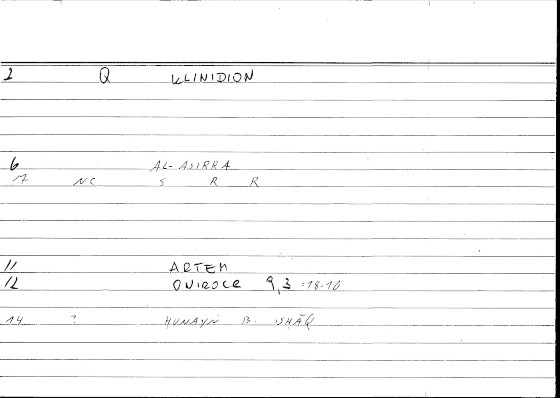 2 Q KLINIDION
6 AL-ASIRRA
7 NC S R R
11 ARTEM
12 ONIROCR 9,3 :18-10
14 ? HUNAYN B. ISHĀQ